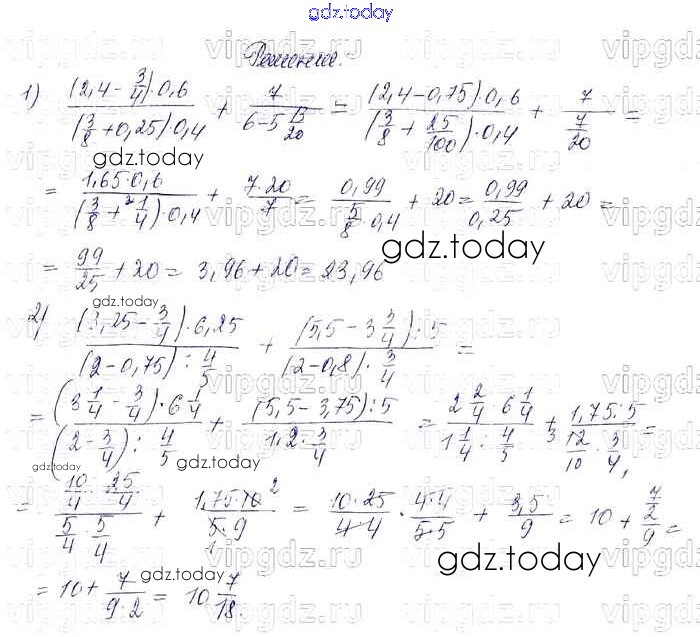 gdz.today
Решение.
1) ((2,4 - 3/4)·0,6)/((3/8 + 0,25)·0,4) + 7/(6 - 5 13/20) = ((2,4 - 0,75)·0,6)/((3/8 + 25/100)·0,4) + 7/(7/20) =
gdz.today
= (1,65·0,6)/((3/8 + 1/4)·0,4) + (7·20)/7 = 0,99/(5/8·0,4) + 20 = 0,99/0,25 + 20 =
gdz.today
= 99/25 + 20 = 3,96 + 20 = 23,96
gdz.today
2) ((3,25 - 3/4)·6,25)/((2 - 0,75) : 4/5) + ((5,5 - 3 3/4) : 5)/((2 - 0,8)·3/4) =
= ((3 1/4 - 3/4)·6 1/4)/((2 - 3/4) : 4/5) + ((5,5 - 3,75) : 5)/(1,2·3/4) = (2 2/4·6 1/4)/(1 1/4 : 4/5) + (1,75 : 5)/(12/10·3/4) =
gdz.today gdz.today
= (10/4·25/4)/(5/4·5/4) + (1,75·10)/(5·9) = (10·25)/(4·4)·(4·4)/(5·5) + 3,5/9 = 10 + (7/2)/9 =
gdz.today
= 10 + 7/(9·2) = 10 7/18.
gdz.today
vipgdz.ru